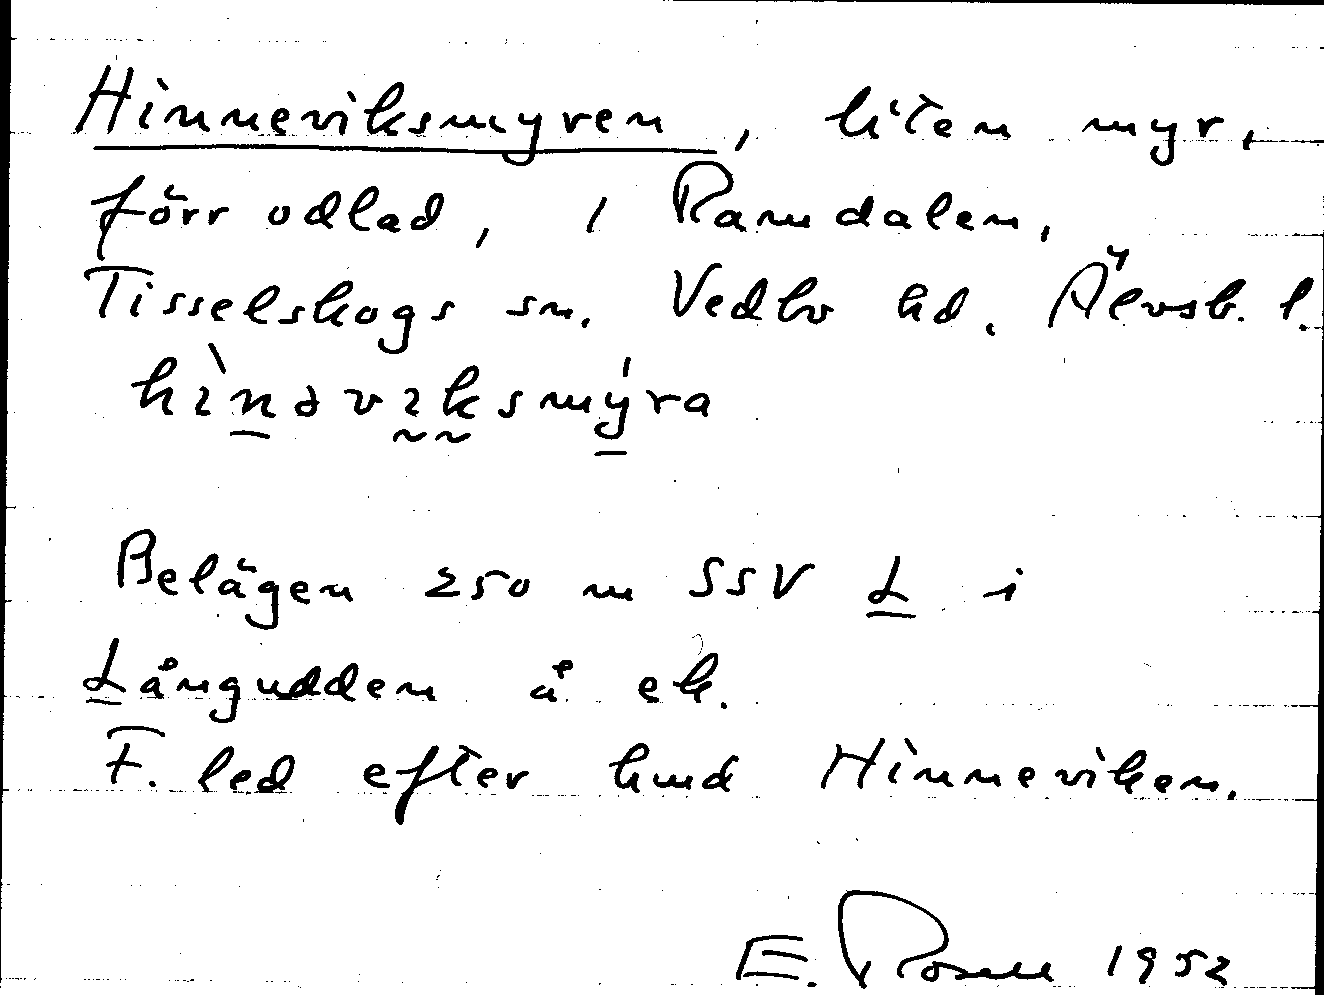 Hinneviksmyren, liten myr,
förr odlad, i Ramdalen,
Tisselskogs sn. Vedbo hd. Älvsb. l.
hìnəvıksmýra
Belägen 250 m SSV L i
Långudden å ek.
F. led efter hmd Hinneviken.
E. Rosell 1952